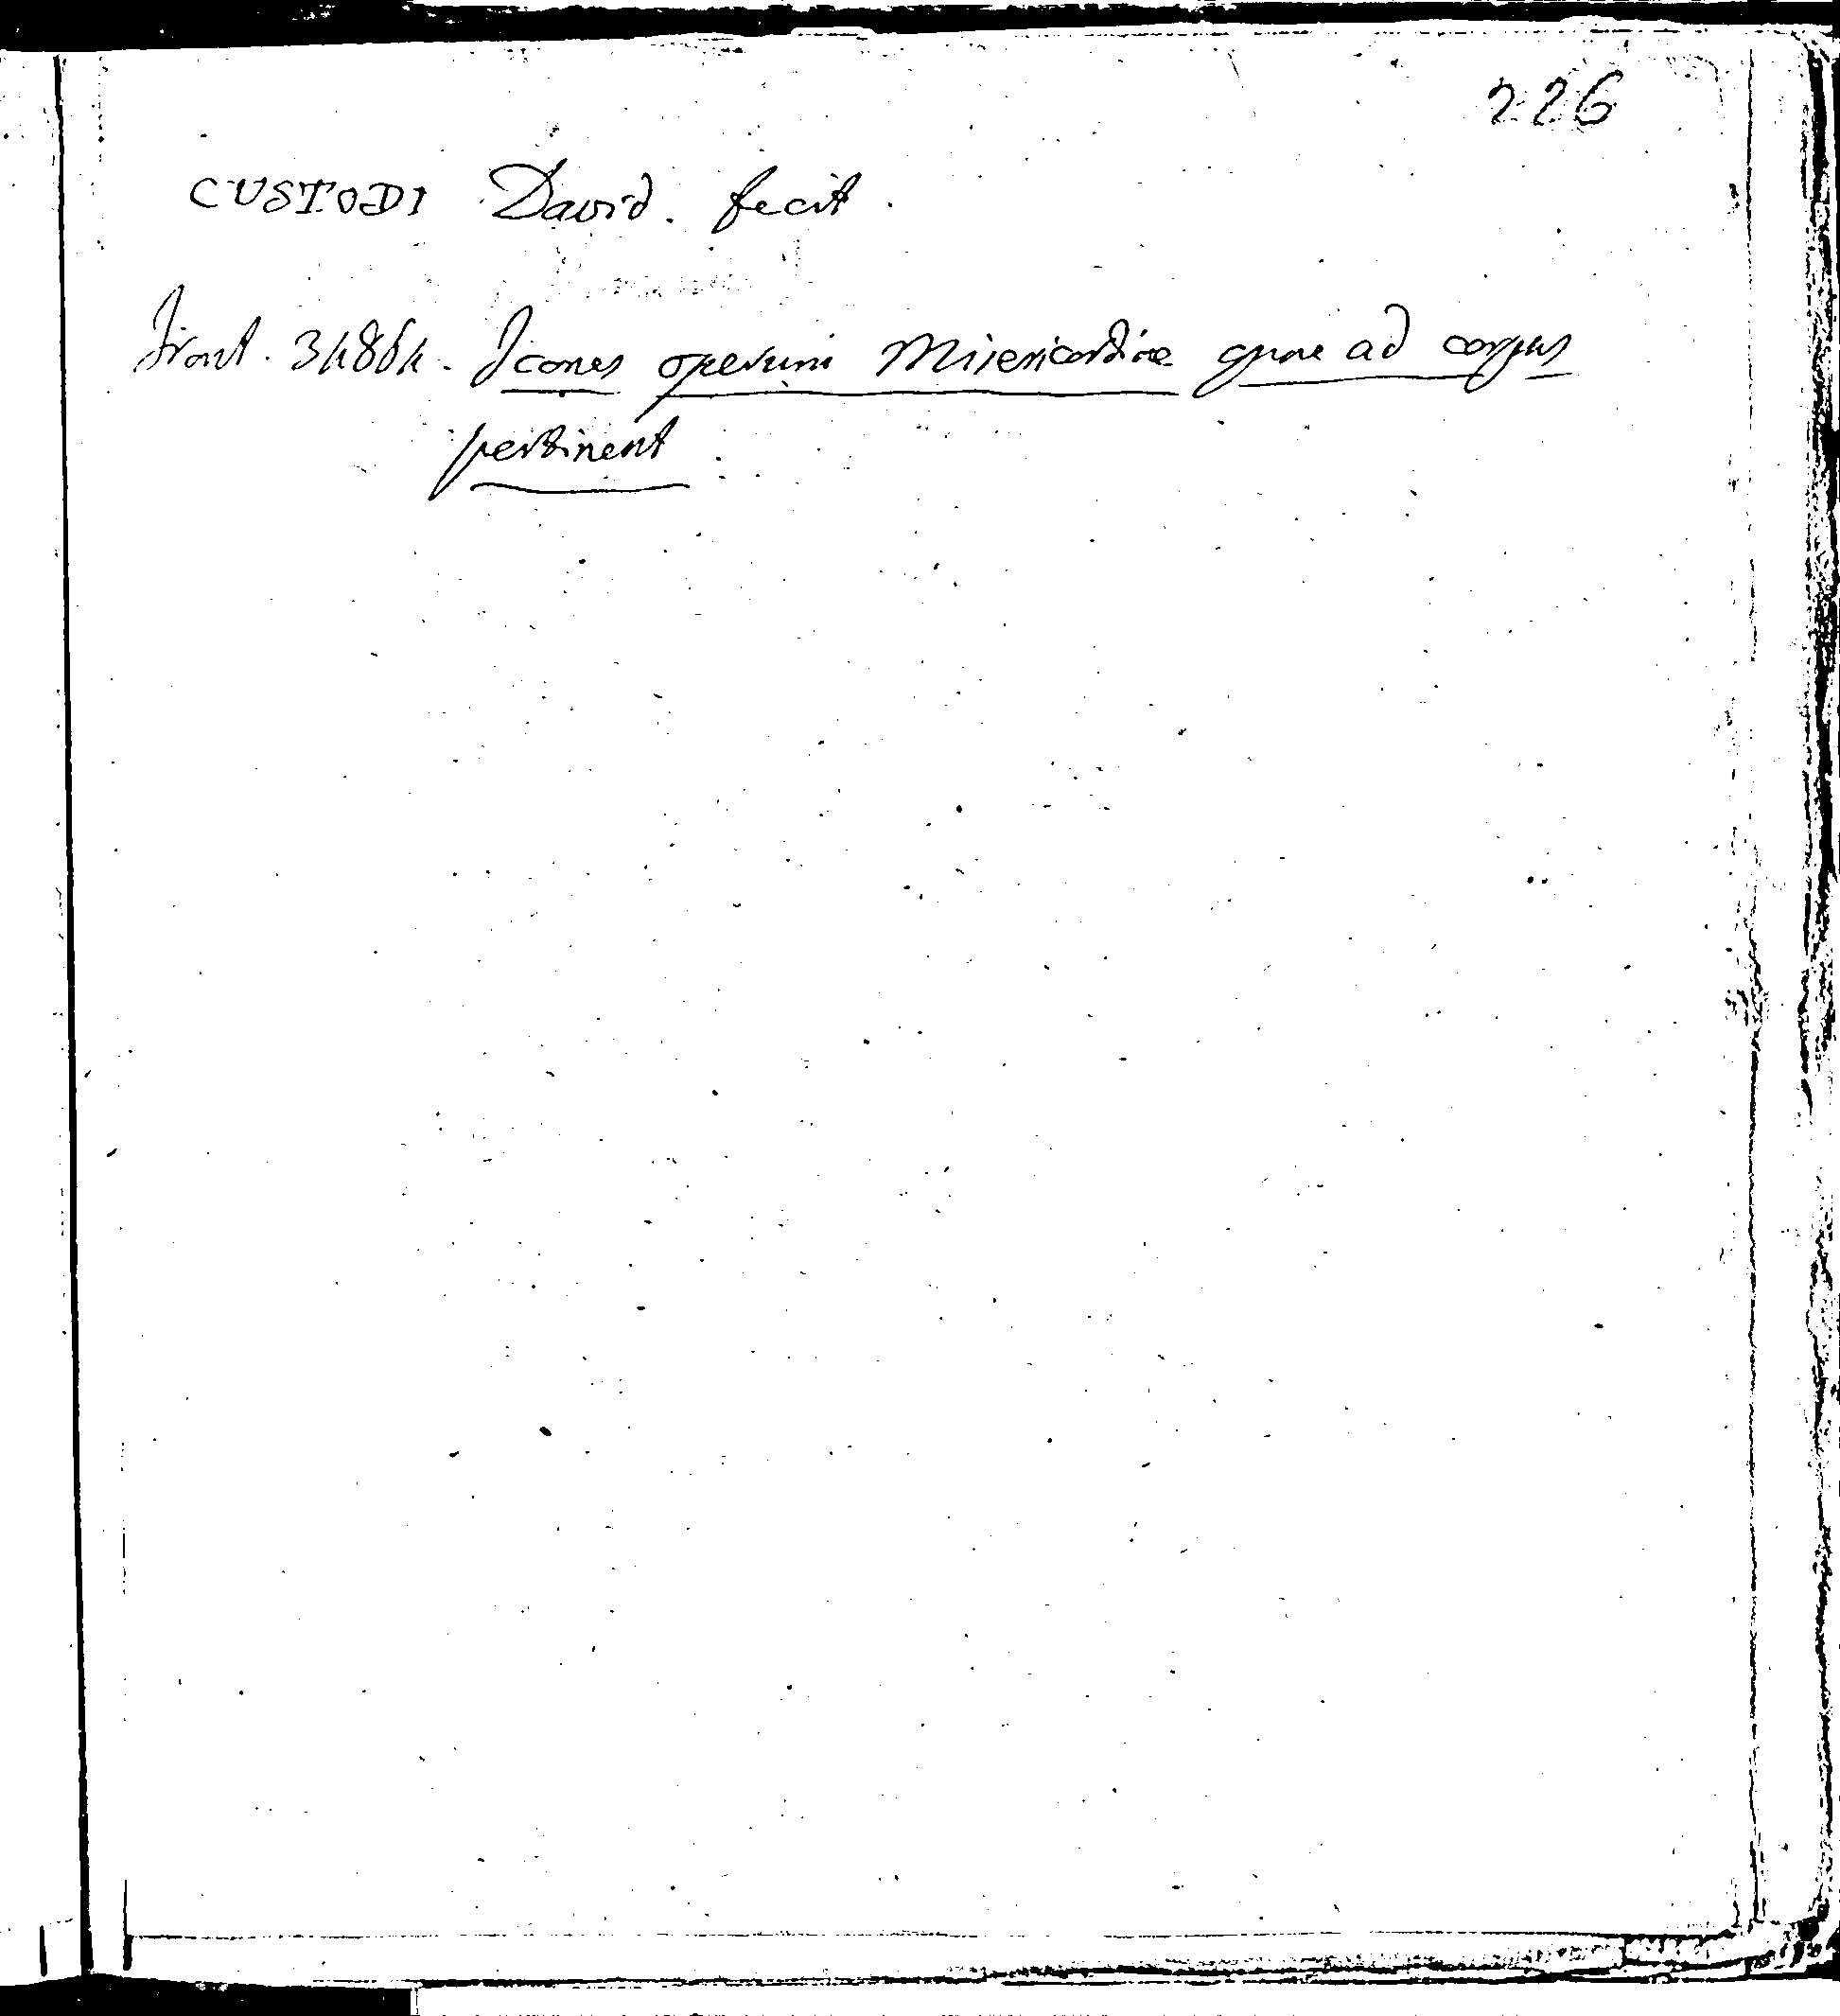 226
CUSTODI David. fecit.
Front. 34864. Icones operum Misericordiae quae ad corpus
pertinent.